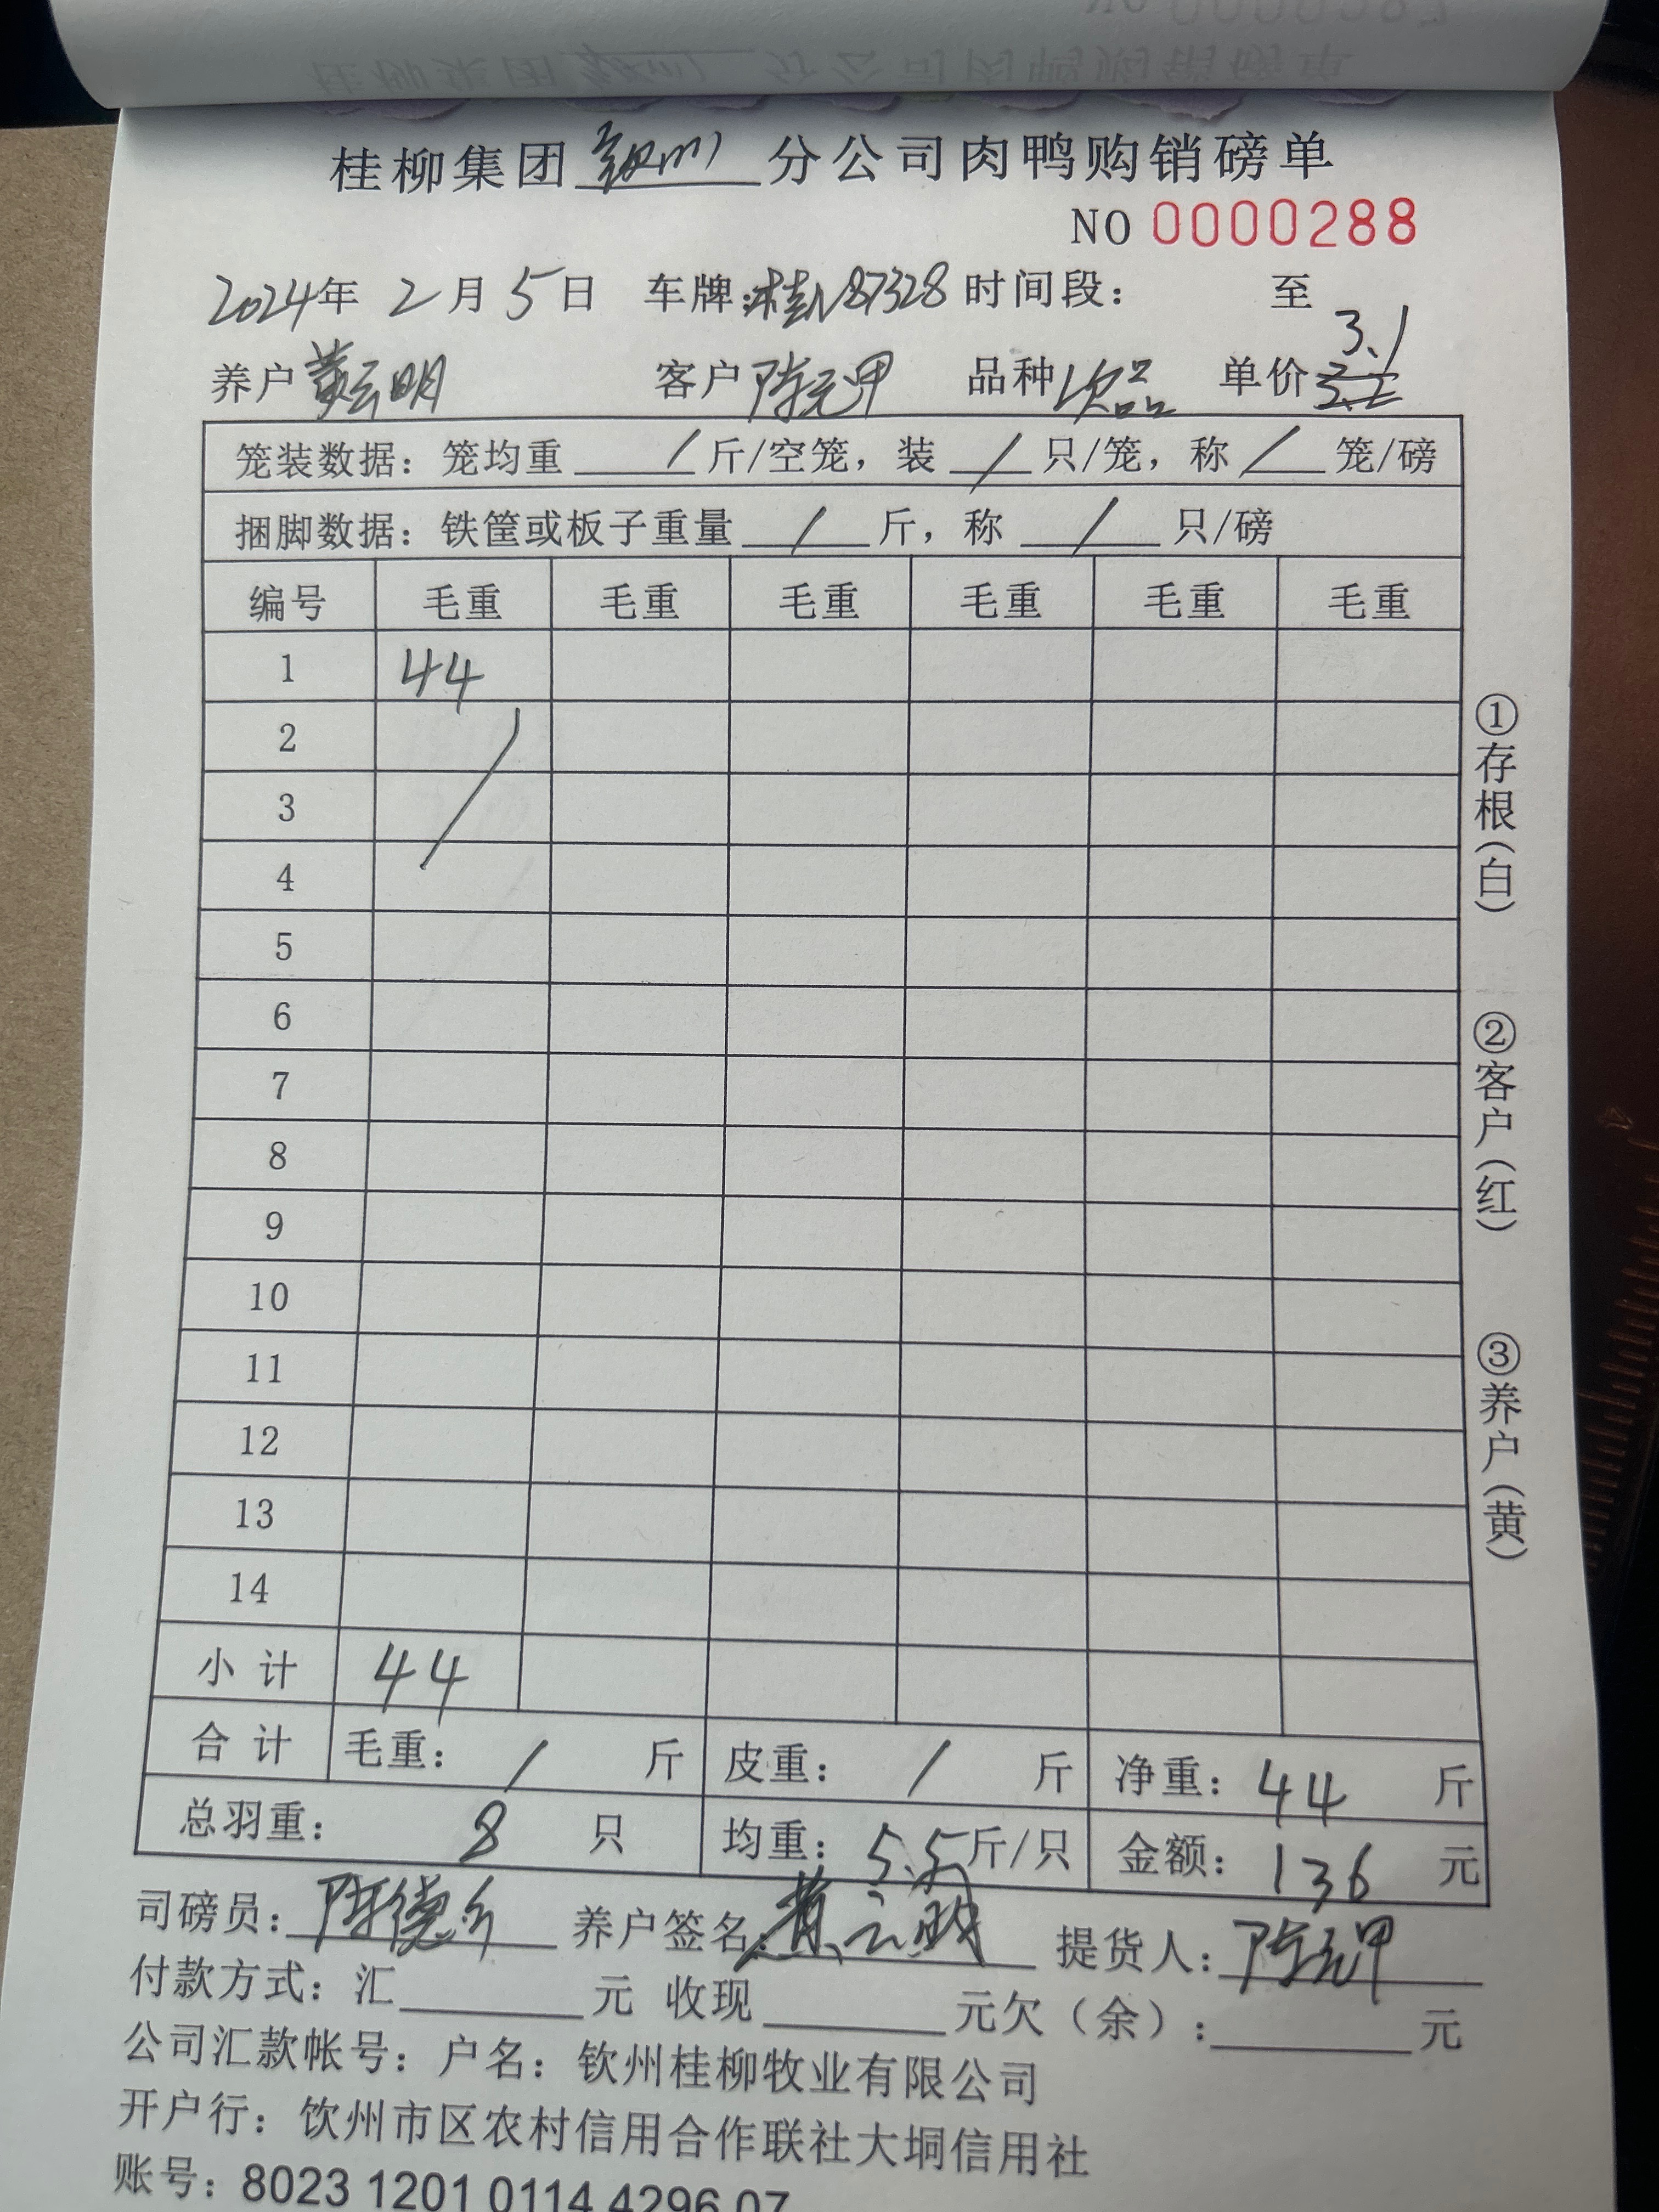 桂柳集团钦州分公司肉鸭购销磅单
NO 0000288
2024年 2月5日 车牌:桂N87328 时间段: 至
3.1
养户黄云明 客户陈元甲 品种次品 单价
笼装数据: 笼均重 / 斤/空笼, 装 / 只/笼, 称 / 笼/磅
捆脚数据: 铁筐或板子重量 / 斤, 称 / 只/磅
编号 毛重 毛重 毛重 毛重 毛重 毛重
1 44
2
3
4
5
6
7
8
9
10
11
12
13
14
小计 44
合计 毛重: / 斤 皮重: / 斤 净重: 44 斤
总羽重: 8 只 均重: 5.5斤/只 金额: 136 元
司磅员: 陈德 养户签名: 黄云明 提货人: 陈元甲
付款方式: 汇 元 收现 元欠(余): 元
公司汇款帐号: 户名: 钦州桂柳牧业有限公司
开户行: 钦州市区农村信用合作联社大垌信用社
账号: 8023 1201 0114 4296 07
①存根(白)
②客户(红)
③养户(黄)